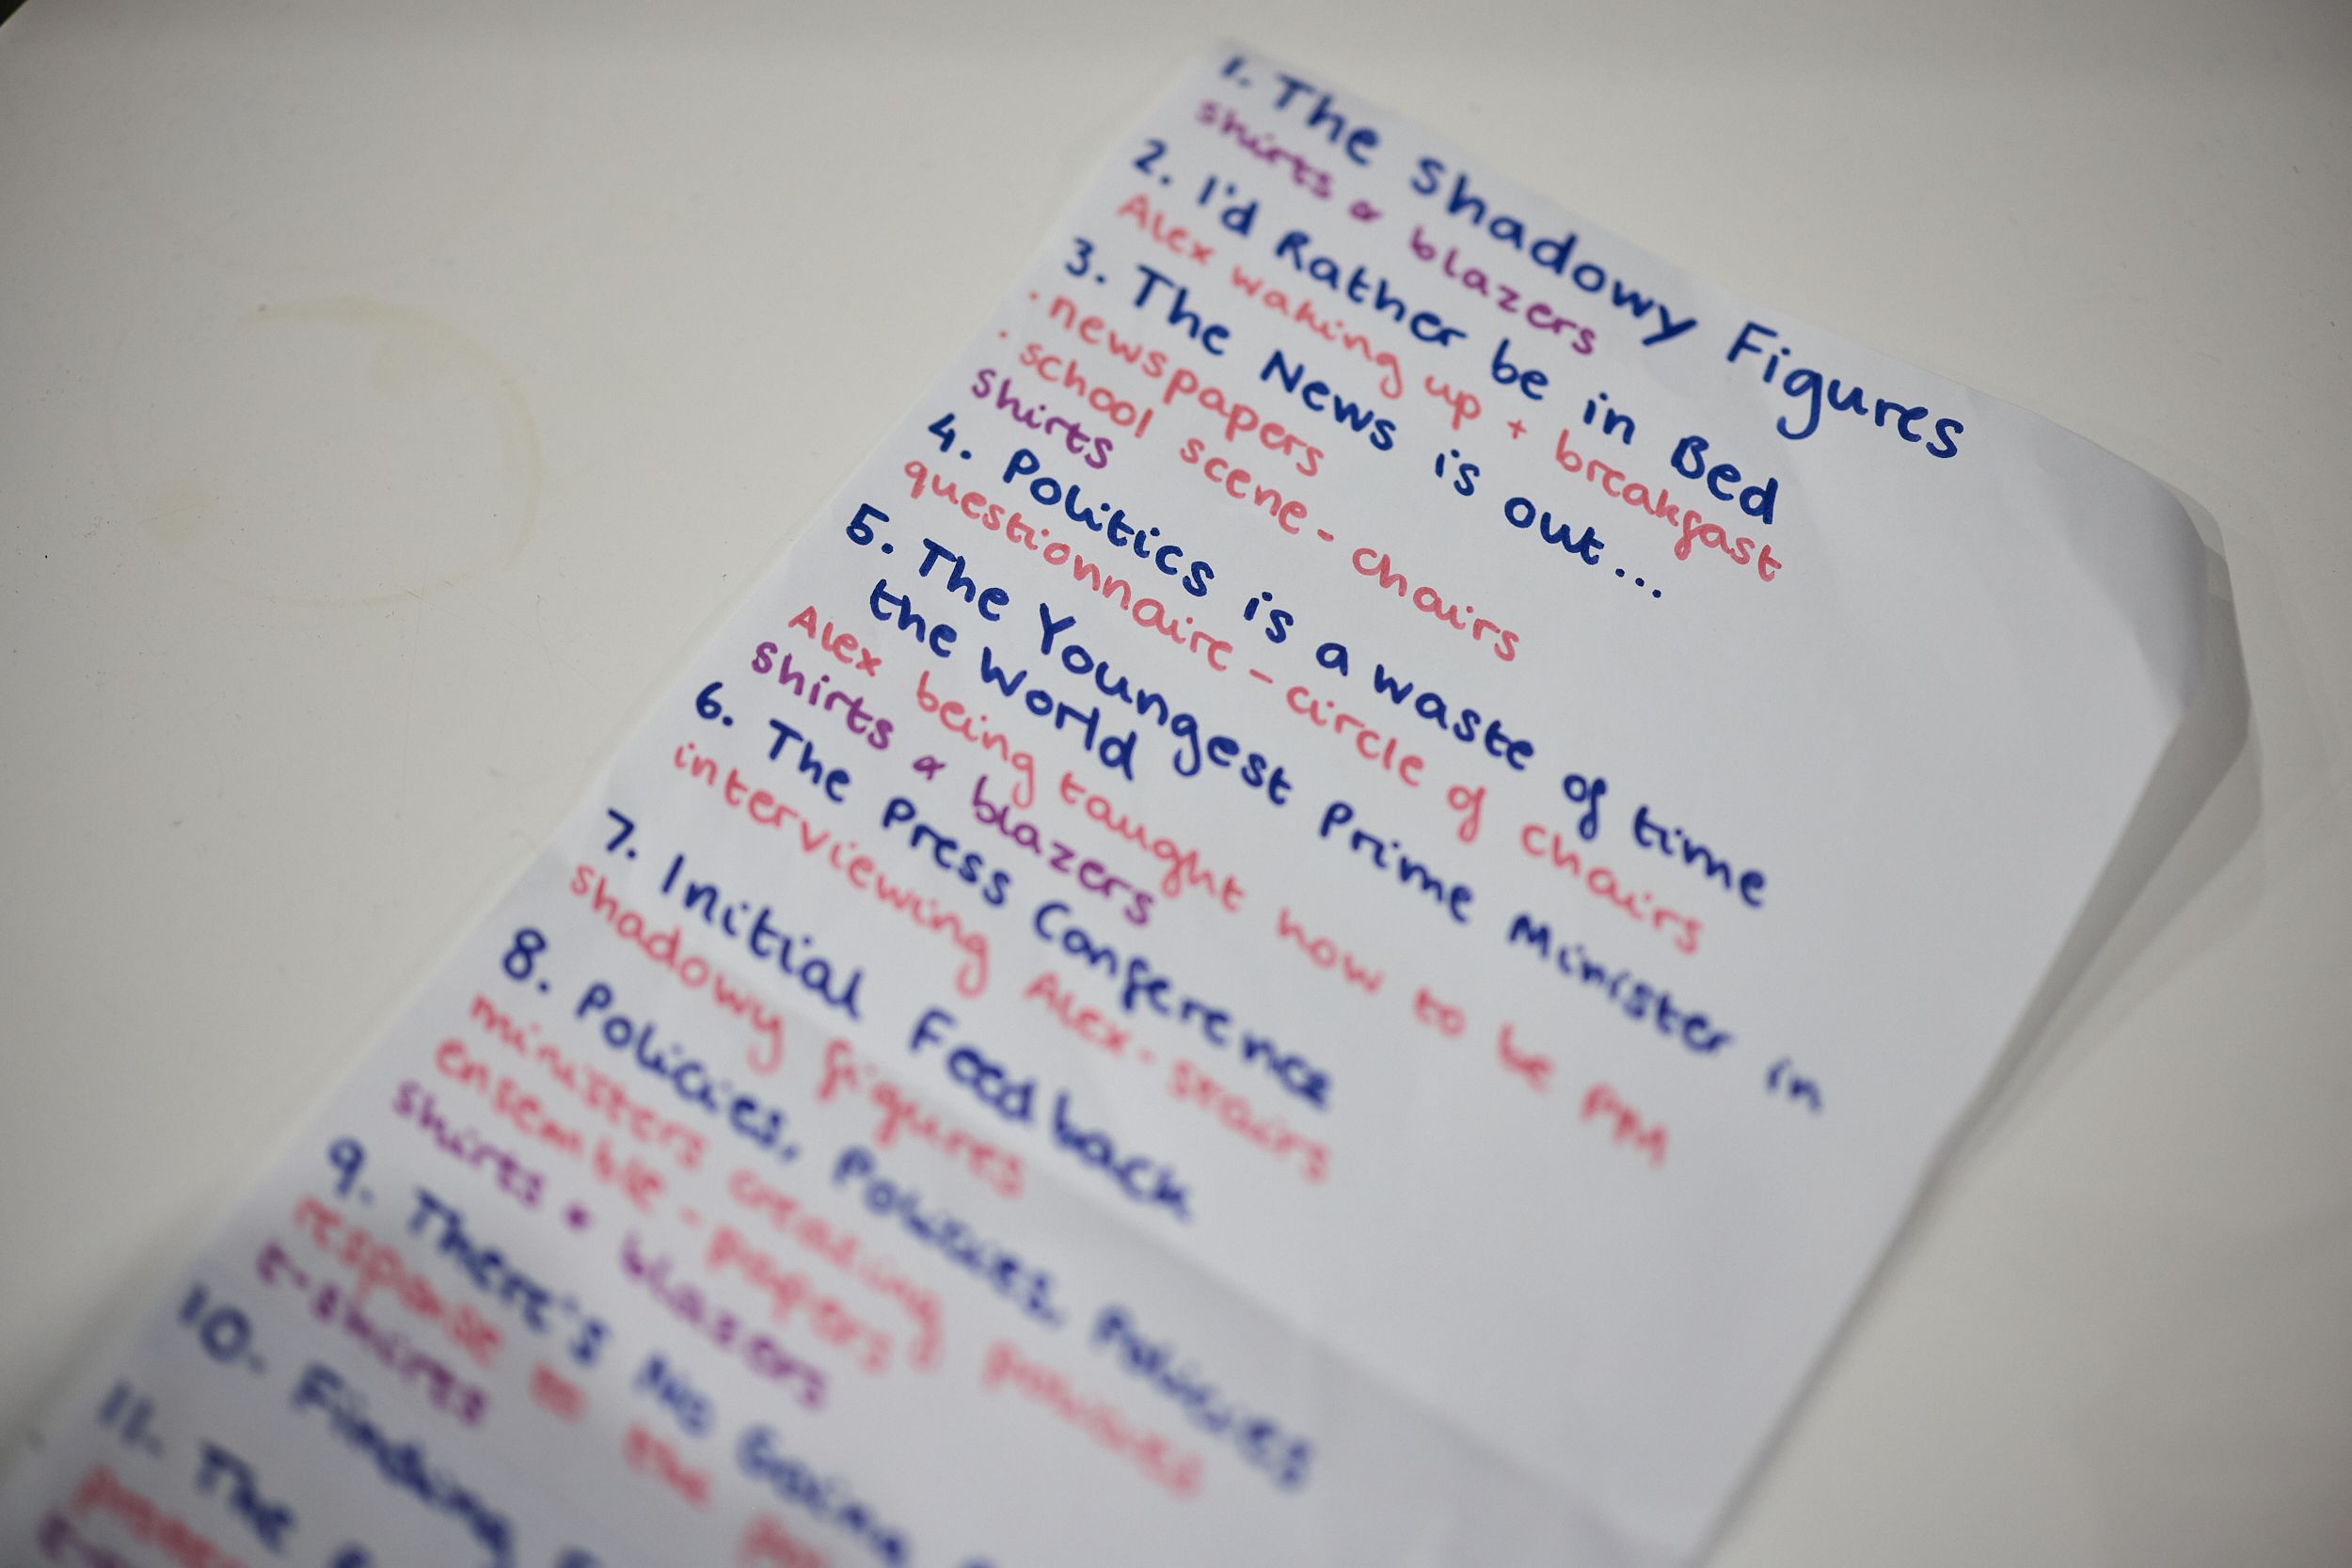 1. The Shadowy Figures
shirts & blazers
2. I'd Rather be in Bed
Alex waking up + breakfast
3. The News is out...
· newspapers
· school scene - chairs
shirts
4. Politics is a waste of time
questionnaire - circle of chairs
5. The Youngest Prime Minister in
the world
Alex being taught how to be PM
shirts & blazers
6. The Press Conference
interviewing Alex - stairs
7. Initial Feedback
shadowy figures
8. Policies, Policies, Policies
ministers creating policies
ensemble - papers
shirts & blazers
9. There's No Going
response to the
t-shirts
10. Finding
11. The